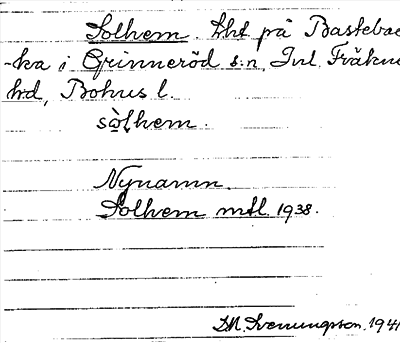 Solhem. Lht på Bastebac
-ka i Grinneröd s:n, Inl. Fräkne
hd, Bohus l.
sòlhem.
Nynamn.
Solhem mtl. 1938.
D.M. Svenungsson. 1941